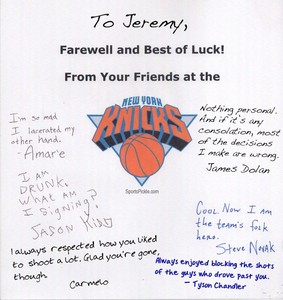 To Jeremy,
Farewell and Best of Luck!
From Your Friends at the
NEW YORK
KNICKS
SportsPickle.com
I'm so mad
I lacerated my
other hand.
- Amar'e
Nothing personal.
And if it's any
consolation, most
of the decisions
I make are wrong.
James Dolan
I AM
DRUNK.
WHAT AM
I SIGNING?
JASON KIDD
COOL. NOW I AM
THE TEAM'S folk
hero.
STEVE NOVAK
I always respected how you liked
to shoot a lot. Glad you're gone,
though.
Carmelo
Always enjoyed blocking the shots
of the guys who drove past you.
- Tyson Chandler